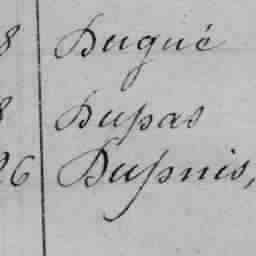 8 Dugué
8 Dupas
26 Dupuis,